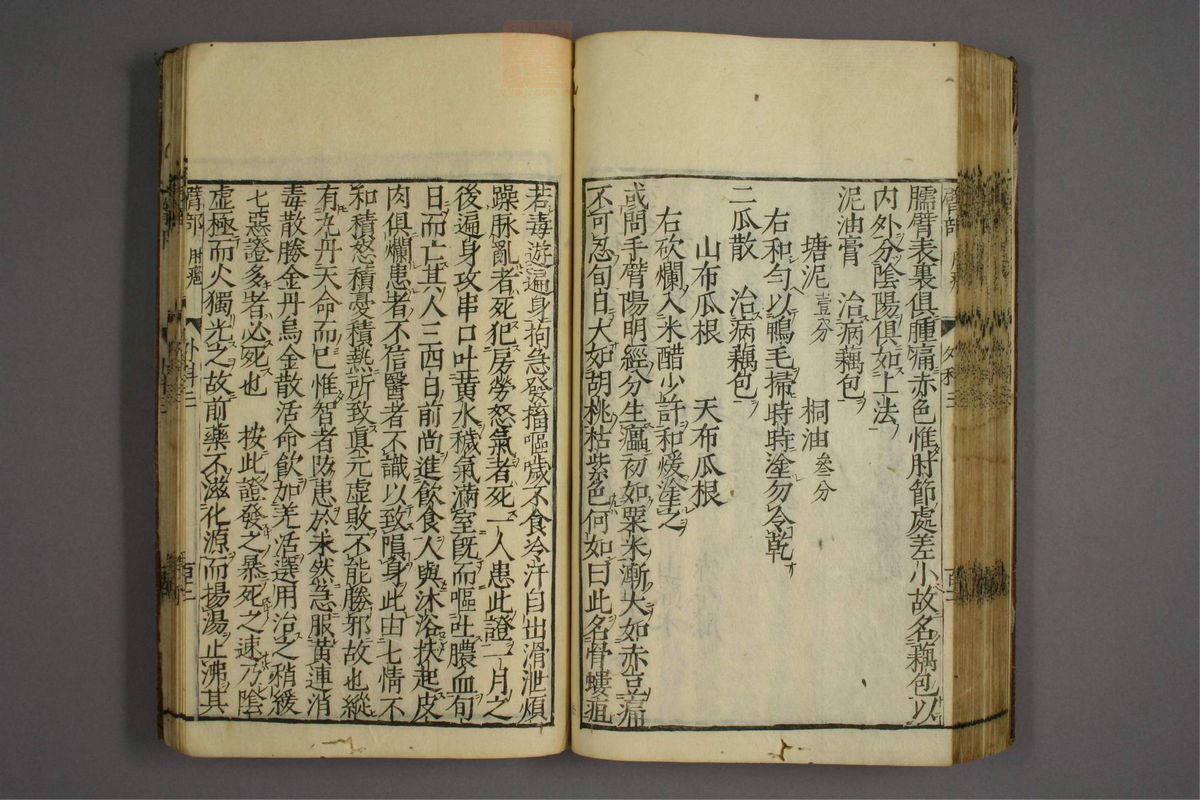 臑臂表裏俱腫痛赤色惟肘節處差小故名藕包以
內外分陰陽俱如上法
泥油膏 治病藕包
塘泥壹分 桐油叄分
右和勻以鴨毛掃時時塗勿令乾
二瓜散 治病藕包
山布瓜根 天布瓜根
右砍爛入米醋少許和煖塗之
或問手臂陽明經分生瘟初如粟米漸大如赤豆痛
不可忍旬日大如胡桃枯紫色何如曰此名骨螻疽
若毒遊遍身拘急發搐嘔噦不食冷汗自出滑泄煩
躁脉亂者死犯房勞怒氣者死一人患此證一月之
後遍身攻串口吐黃水穢氣滿室旣而嘔吐膿血旬
日而亡其人三四日前尚進飲食人與沐浴扶起皮
肉俱爛患者不信醫者不識以致隕身此由七情不
和積怒積憂積熱所致眞元虛敗不能勝邪故也縱
有九丹天命而已惟智者防患於未然急服黃連消
毒散勝金丹烏金散活命飲加羌活選用治之稍緩
七惡證多者必死也 按此證發之暴死之速乃陰
虛極而火獨光之故前藥不滋化源而揚湯止沸其
臂部 肘癰 外科三